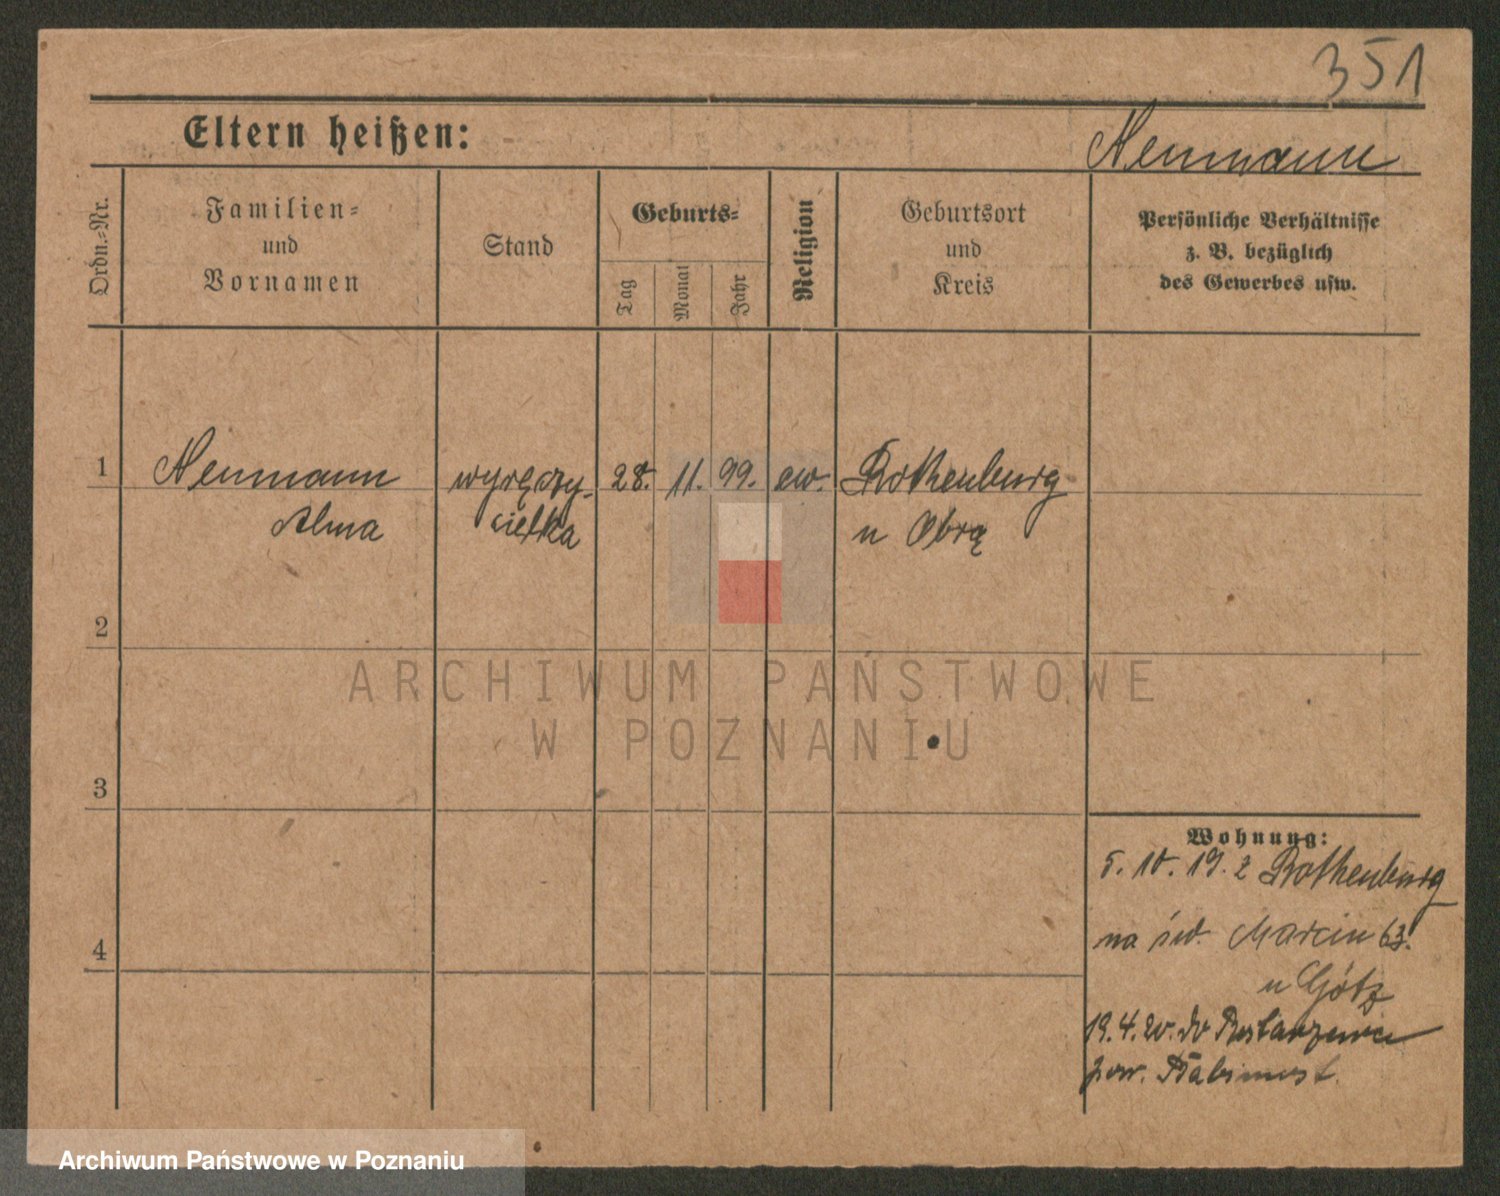 351
Eltern heißen:
Neumann
Ordn.-Nr.
Familien-
und
Vornamen
Stand
Geburts-
Tag
Monat
Jahr
Religion
Geburtsort
und
Kreis
Persönliche Verhältnisse
z. B. bezüglich
des Gewerbes usw.
1
Neumann
Alma
wyręczy-
cielka
28. 11. 99. ew.
Rothenburg
n Obrą
2
ARCHIWUM PAŃSTWOWE
W POZNANIU
3
Wohnung:
5. 10. 19. z Rothenburg
na św. Marcin 63.
u Götz
4
19.4.20. do
pow. Babimost.
Archiwum Państwowe w Poznaniu